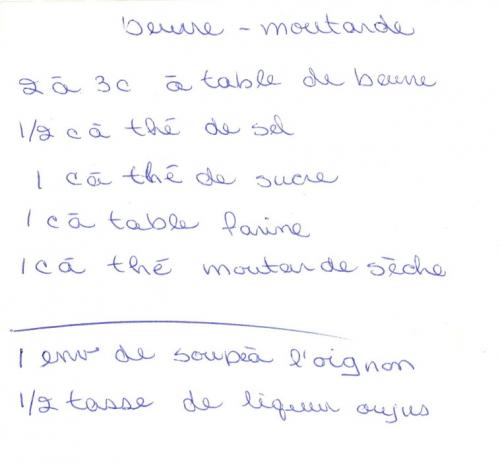 beurre - moutarde
2 à 3c à table de beurre
1/2 c à thé de sel
1 c à thé de sucre
1 c à table farine
1 c à thé moutarde sèche
1 env de soupe à l'oignon
1/2 tasse de liqueur ou jus